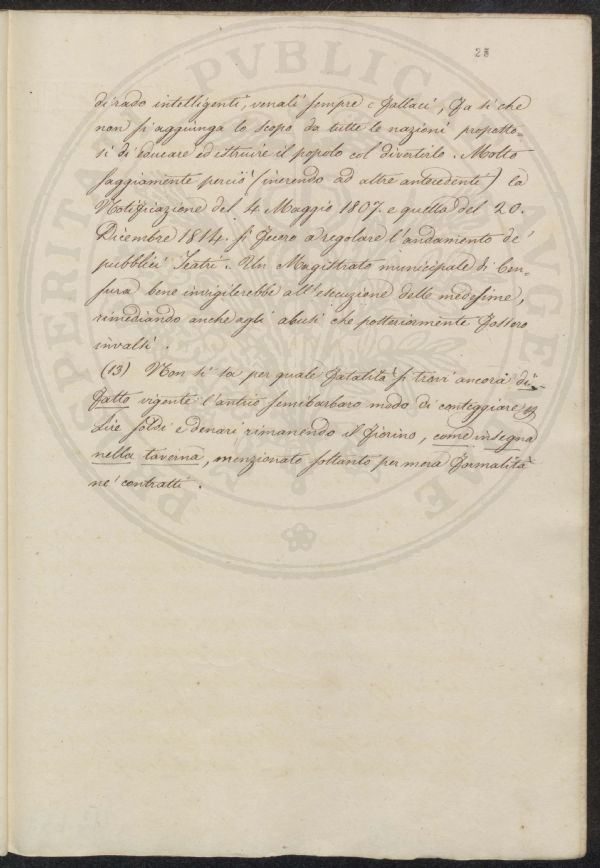 23
di rado intelligenti, venali sempre e fallaci, fa si che
non si aggiunga lo scopo da tutte le nazioni propostto=
si di educare ed istruire il popolo col divertirlo. Molto
saggiamente perciò (inerendo ad altre antecedenti) la
Notificazione del 4. Maggio 1807. e quella del 20.
Dicembre 1814. si fecero a regolare l'andamento de'
pubblici Teatri. Un Magistrato municipale di Cen=
sura bene invigilerebbe all'esecuzione delle medesime,
rimediando anche agli abusi che posteriormente fossero
invalsi.
(13) Non si sa per quale fatalità si trovi ancora di
fatto vigente l'antico semibarbaro modo di conteggiare
Lire soldi e denari rimanendo il fiorino, come insegna
nella taverna, menzionato soltanto per mera formalità
ne' contratti.
PROSPERITATI PUBLICAE AUGENDAE